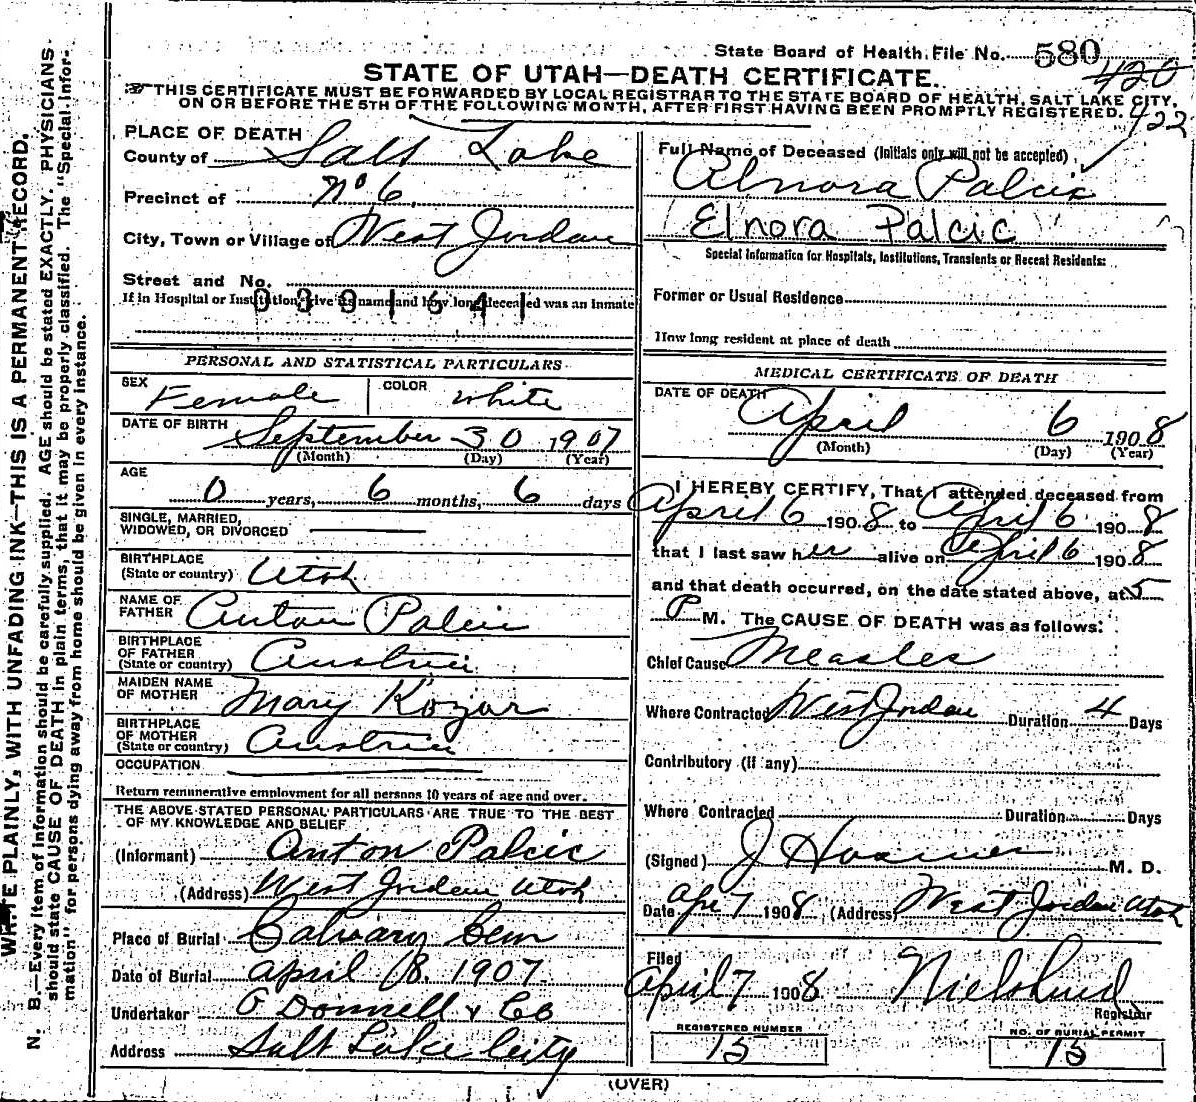 State Board of Health File No. 580
420
STATE OF UTAH—DEATH CERTIFICATE.
THIS CERTIFICATE MUST BE FORWARDED BY LOCAL REGISTRAR TO THE STATE BOARD OF HEALTH, SALT LAKE CITY,
ON OR BEFORE THE 5TH OF THE FOLLOWING MONTH, AFTER FIRST HAVING BEEN PROMPTLY REGISTERED.
422
WRITE PLAINLY, WITH UNFADING INK—THIS IS A PERMANENT RECORD.
N. B.—Every item of information should be carefully supplied. AGE should be stated EXACTLY. PHYSICIANS
should state CAUSE OF DEATH in plain terms, that it may be properly classified. The "Special Infor-
mation" for persons dying away from home should be given in every instance.
PLACE OF DEATH
County of Salt Lake
Precinct of No 6.
City, Town or Village of West Jordan
Street and No.
If in Hospital or Institution, give its name and how long deceased was an inmate
0391641
PERSONAL AND STATISTICAL PARTICULARS
SEX Female COLOR White
DATE OF BIRTH September 30 1907
(Month) (Day) (Year)
AGE 0 years, 6 months, 6 days
SINGLE, MARRIED,
WIDOWED, OR DIVORCED
BIRTHPLACE
(State or country) Utah
NAME OF
FATHER Anton Palcic
BIRTHPLACE
OF FATHER
(State or country) Austria
MAIDEN NAME
OF MOTHER Mary Kozar
BIRTHPLACE
OF MOTHER
(State or country) Austria
OCCUPATION
Return remunerative employment for all persons 10 years of age and over.
THE ABOVE STATED PERSONAL PARTICULARS ARE TRUE TO THE BEST
OF MY KNOWLEDGE AND BELIEF
(Informant) Anton Palcic
(Address) West Jordan Utah
Place of Burial Calvary Cem
Date of Burial April 8. 1907.
Undertaker O Donnell & Co
Address Salt Lake City
Full Name of Deceased (Initials only will not be accepted)
Alnora Palcic
(Elnora Palcic)
Special Information for Hospitals, Institutions, Transients or Recent Residents:
Former or Usual Residence
How long resident at place of death
MEDICAL CERTIFICATE OF DEATH
DATE OF DEATH
April 6 1908
(Month) (Day) (Year)
I HEREBY CERTIFY, That I attended deceased from
April 6 1908 to April 6 1908
that I last saw her alive on April 6 1908
and that death occurred, on the date stated above, at 5
P M. The CAUSE OF DEATH was as follows:
Chief Cause Measles
Where Contracted West Jordan Duration 4 Days
Contributory (if any)
Where Contracted Duration Days
(Signed) J M. D.
Date Apr 7 1908 (Address) West Jordan Utah
Filed
April 7 1908
Registrar
REGISTERED NUMBER
15
NO. OF BURIAL PERMIT
15
(OVER)